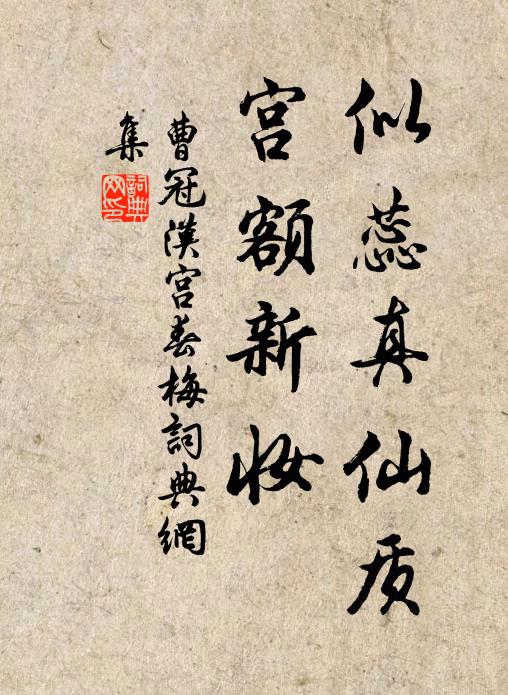 似蕊真仙质
宫额新妆
曹冠漢宫春梅詞典網
集
詞典网印